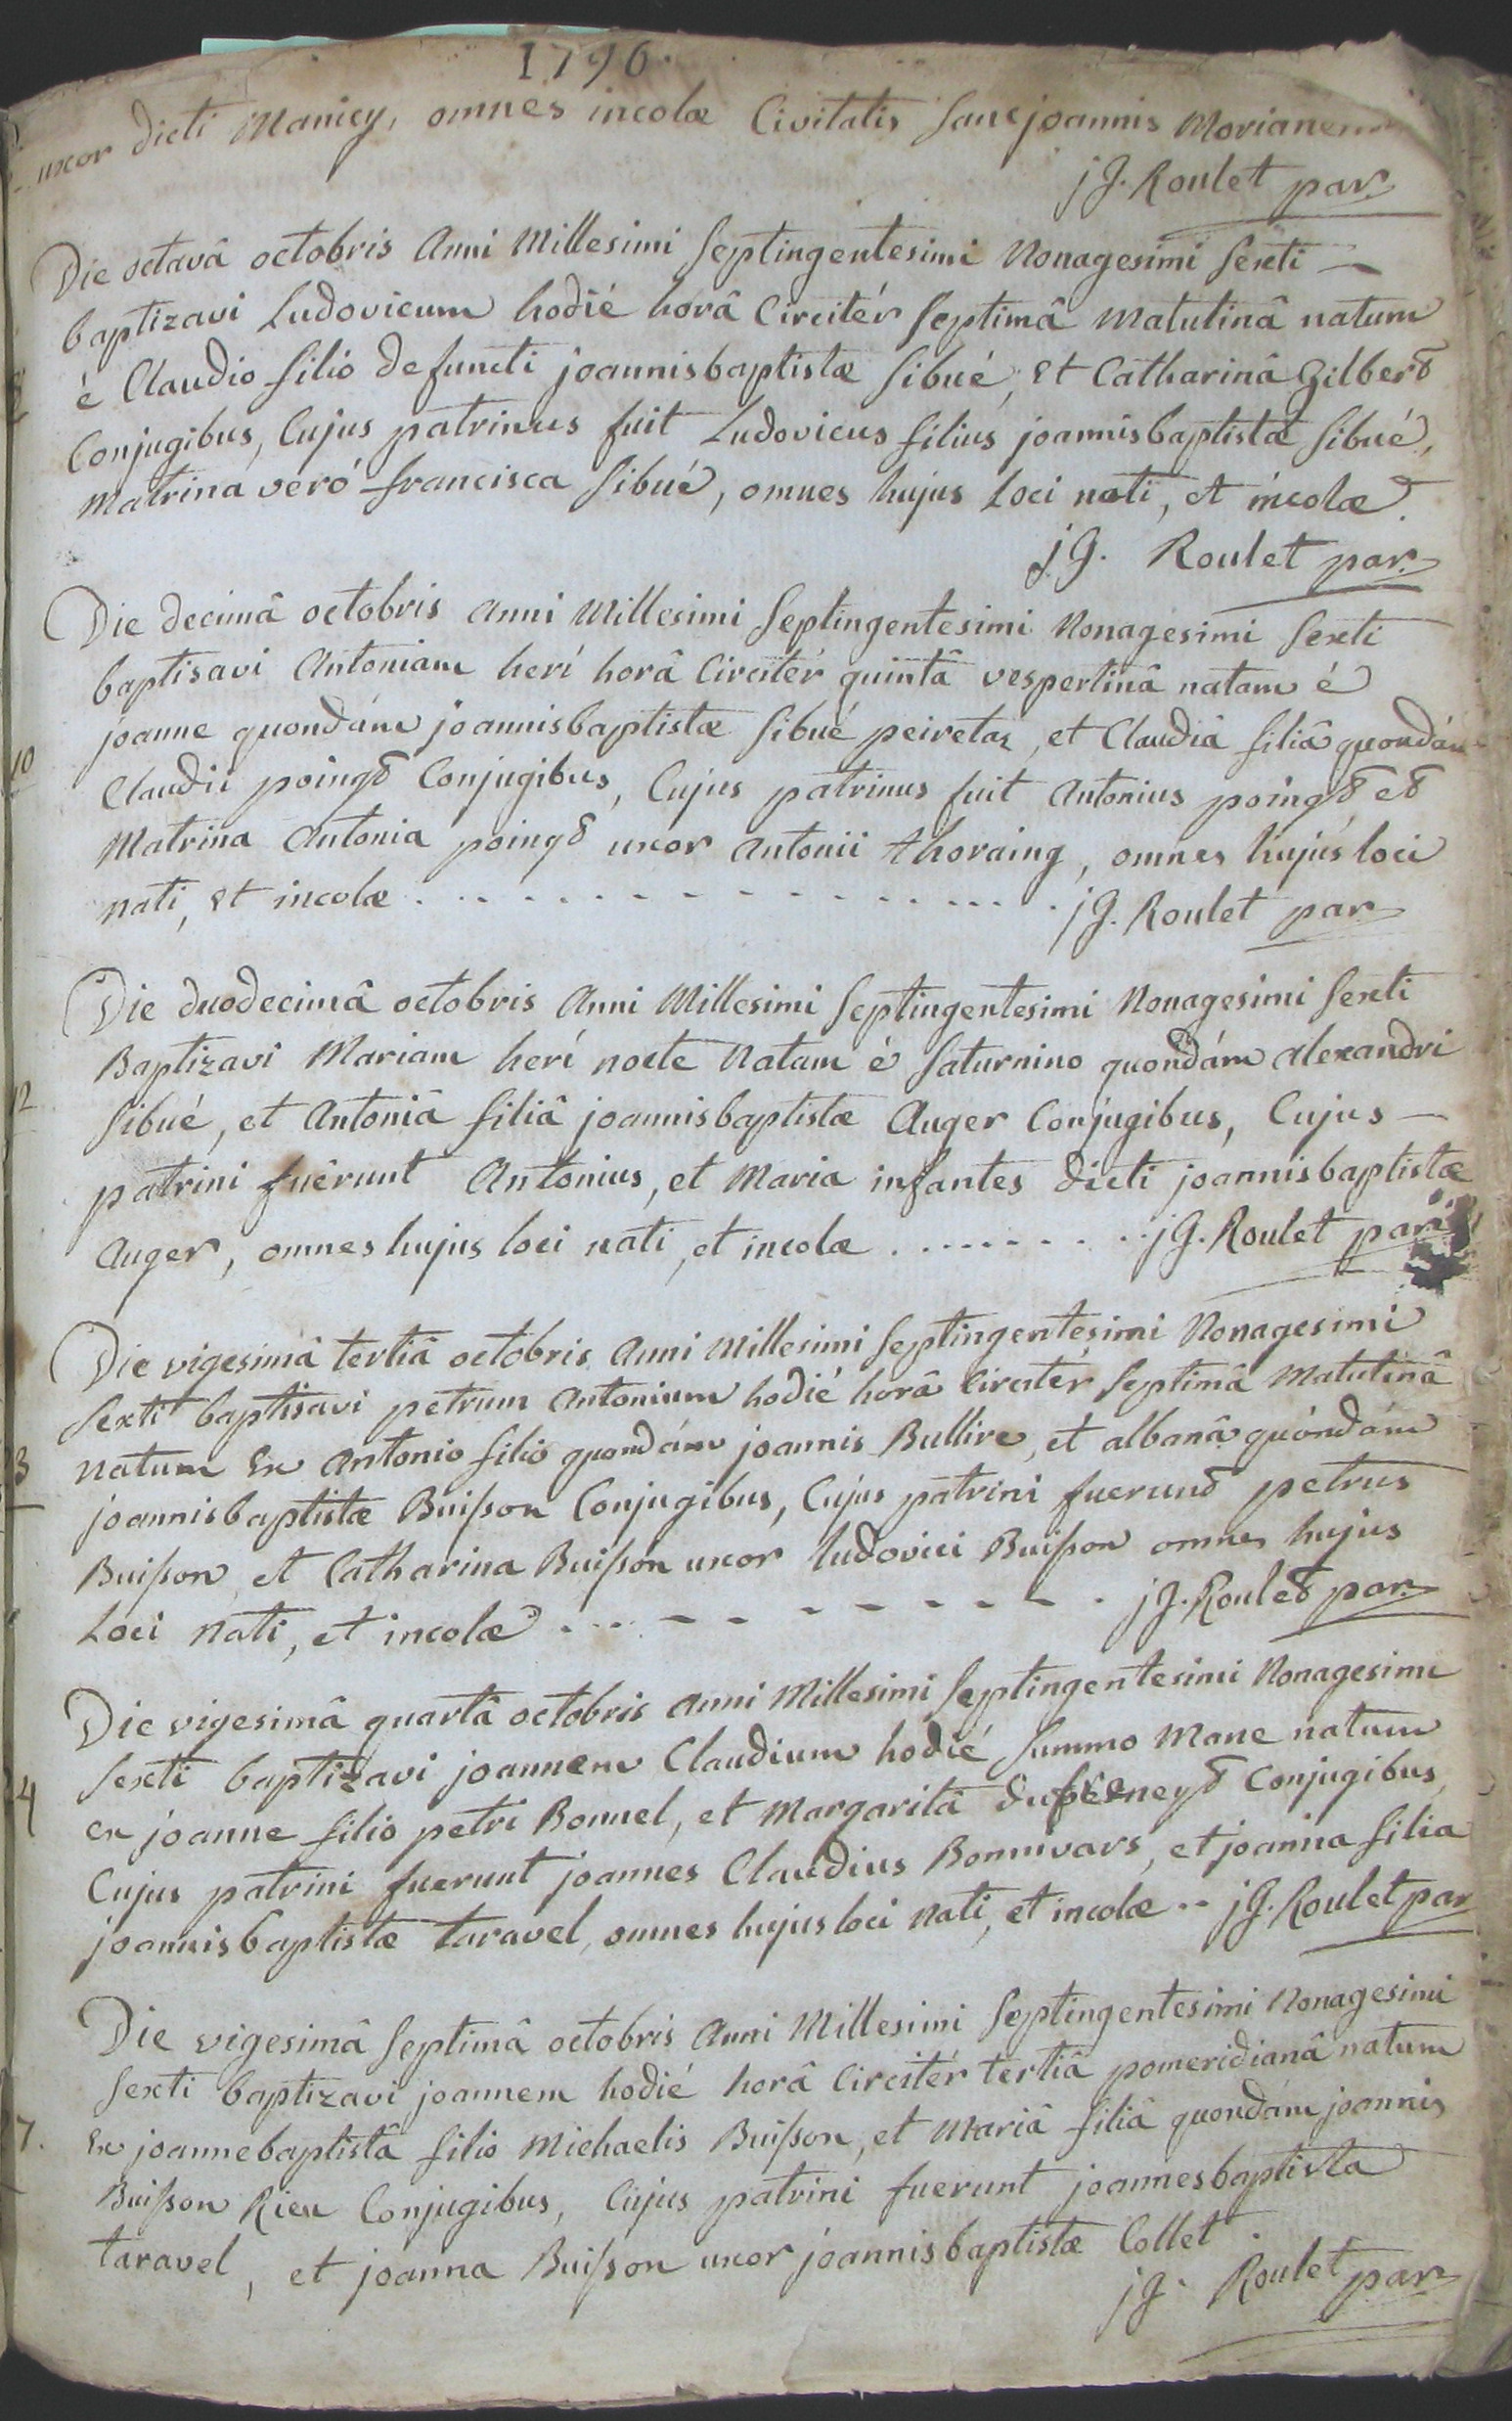 1796.
uxor dicti Manicy, omnes incolæ Civitatis Sanc joannis
jG. Roulet par.
Die octavâ octobris Anni Millesimi Septingentesimi Nonagesimi Sexti —
baptizavi Ludovicum hodié horâ Circitér Septimâ Matutinâ natum
é Claudio filio defuncti joannisbaptistæ Sibué, et Catharinâ Gilbert
Conjugibus, Cujus patrinus fuit Ludovicus filius joannisbaptistæ Sibué,
Matrina veró francisca Sibué, omnes hujus Loci nati, et incolæ.
jG. Roulet par.
Die decimâ octobris Anni Millesimi Septingentesimi Nonagesimi Sexti
baptisavi Antoniam herí horâ Circitér quintâ vespertinâ natam é
joanne quondám joannisbaptistæ Sibué peiretaz, et Claudiâ filiâ quondám
10
Claudii poingt Conjugibus, Cujus patrinus fuit Antonius poingt et
Matrina Antonia poingt uxor Antonii thoraing, omnes hujus loci
nati, et incolæ . . . . . . . . . . . . . . . . . jG. Roulet par
Die duodecimâ octobris Anni Millesimi Septingentesimi Nonagesimi Sexti
Baptizavi Mariam herí nocte Natam é Saturnino quondám alexandri
12
Sibué, et Antoniâ filiâ joannisbaptistæ Auger Conjugibus, Cujus —
patrini fuêrunt Antonius, et Maria infantes dicti joannisbaptistæ
Auger, omnes hujus loci nati, et incolæ . . . . . . . . . jG. Roulet par.
Die vigesimâ tertiâ octobris Anni Millesimi Septingentesimi Nonagesimi
Sexti baptisavi petrum Antonium hodié horâ Circiter Septimâ Matutinâ
3
natum Ex Antonio filio quondám joannis Bullire, et albanâ quóndám
joannisbaptistæ Buisson Conjugibus, Cujus patrini fuerunt petrus
Buisson, et Catharina Buisson uxor ludovici Buisson omnes hujus
Loci Nati, et incolæ . . . - - - - - - - - . jG. Roulet par.
Die vigesimâ quartâ octobris Anni Millesimi Septingentesimi Nonagesimi
Sexti baptizavi joannem Claudium hodié Summo Mane natum
4
ex joanne filio petri Bonnel, et Margaritâ dufreneyt Conjugibus,
Cujus patrini fuerunt joannes Claudius Bonnivars, et joanna filia
joannisbaptistæ taravel, omnes hujus loci Nati, et incolæ .. jG. Roulet par
Die vigesimâ Septimâ octobris Anni Millesimi Septingentesimi Nonagesimi
Sexti baptizavi joannem hodié horâ Circitér tertiâ pomeridianâ natum
7.
Ex joannebaptistâ filio Michaelis Buisson, et Mariâ filiâ quondám joannis
Buisson Rieu Conjugibus, Cujus patrini fuerunt joannesbaptista
taravel, et joanna Buisson uxor joannisbaptistæ Collet .
jG. Roulet par